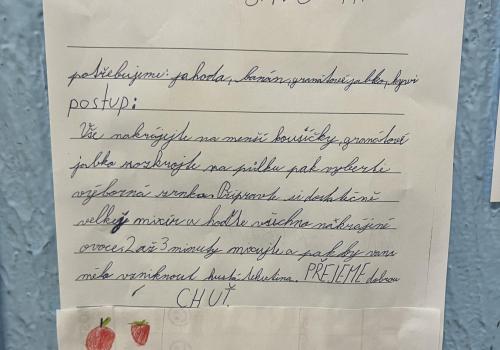 potřebujeme: jahoda, banán, granátové jablko, kywi
postup:
Vše nakrájejte na menší kousíčky, granátové
jabko rozkrojte na půlku pak vyberte
výborná zrnka. Připravte si dostatečně
velkej mixér a hoďte všechno nakrájené
ovoce. 2 až 3 minuty mixujte a pak by vám
mělo vzniknout hustá tekutina. PŘEJEME dobrou
CHUŤ